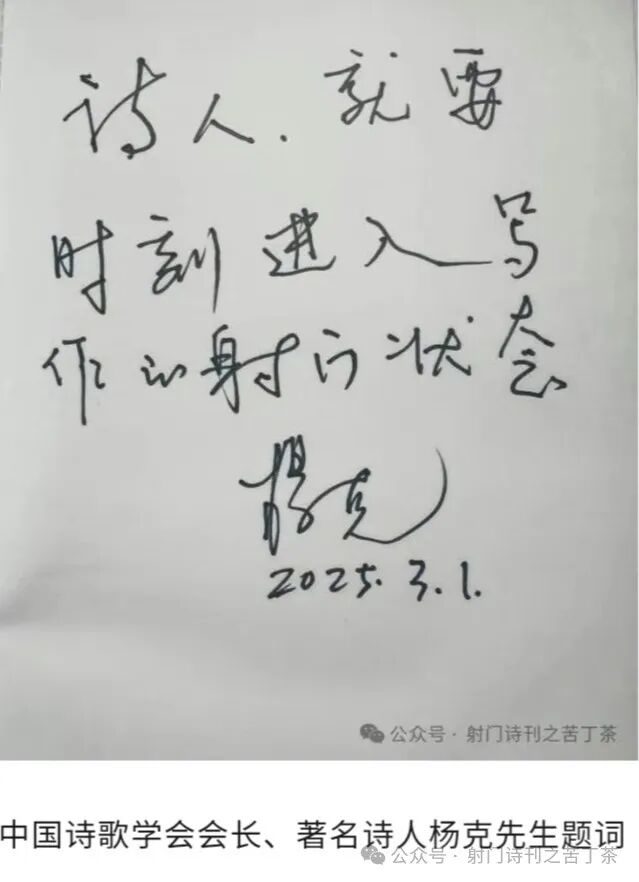 诗人、就要
时刻进入写
作的射门状态
杨克
2025.3.1.
公众号·射门诗刊之苦丁茶
中国诗歌学会会长、著名诗人杨克先生题词
公众号·射门诗刊之苦丁茶